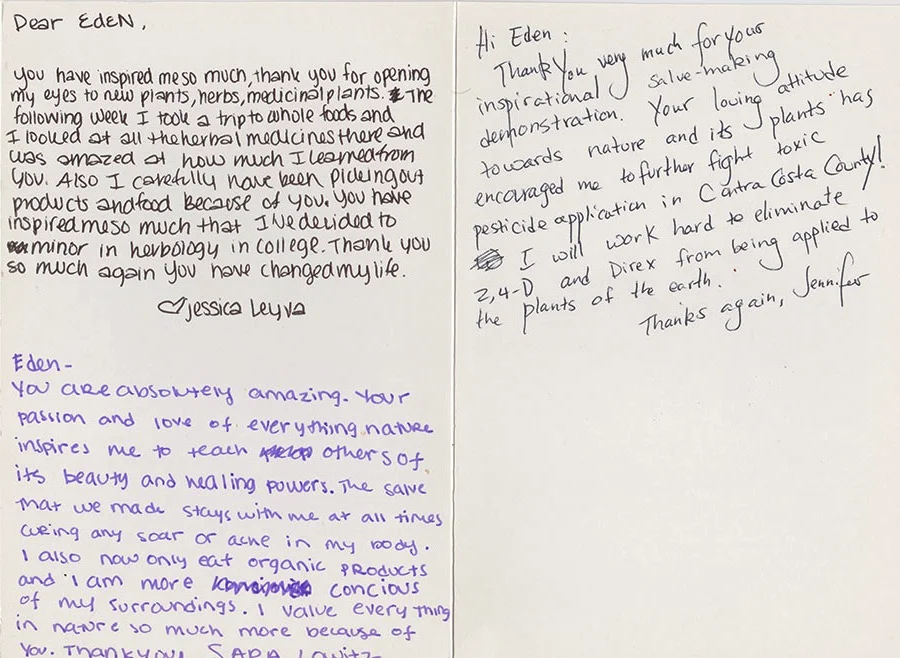 Dear EdEN,
You have inspired me so much, thank you for opening
my eyes to new plants, herbs, medicinal plants. The
following week I took a trip to whole foods and
I looked at all the herbal medicines there and
was amazed at how much I learned from
you. Also I carefully have been picking out
products and food because of you. You have
inspired me so much that I've decided to
minor in herbology in college. Thank you
so much again you have changed my life.
♡jessica Leyva
Eden-
You are absolutely amazing. Your
passion and love of everything nature
inspires me to teach others of
its beauty and healing powers. The salve
that we made stays with me at all times
curing any soar or acne in my body.
I also now only eat organic products
and I am more concious
of my surroundings. I value everything
in nature so much more because of
you. Thank you! SARA
Hi Eden:
Thank you very much for your
inspirational salve-making
demonstration. Your loving attitude
towards nature and its plants has
encouraged me to further fight toxic
pesticide application in Contra Costa County!
I will work hard to eliminate
2,4-D and Direx from being applied to
the plants of the earth.
Thanks again, Jennifer